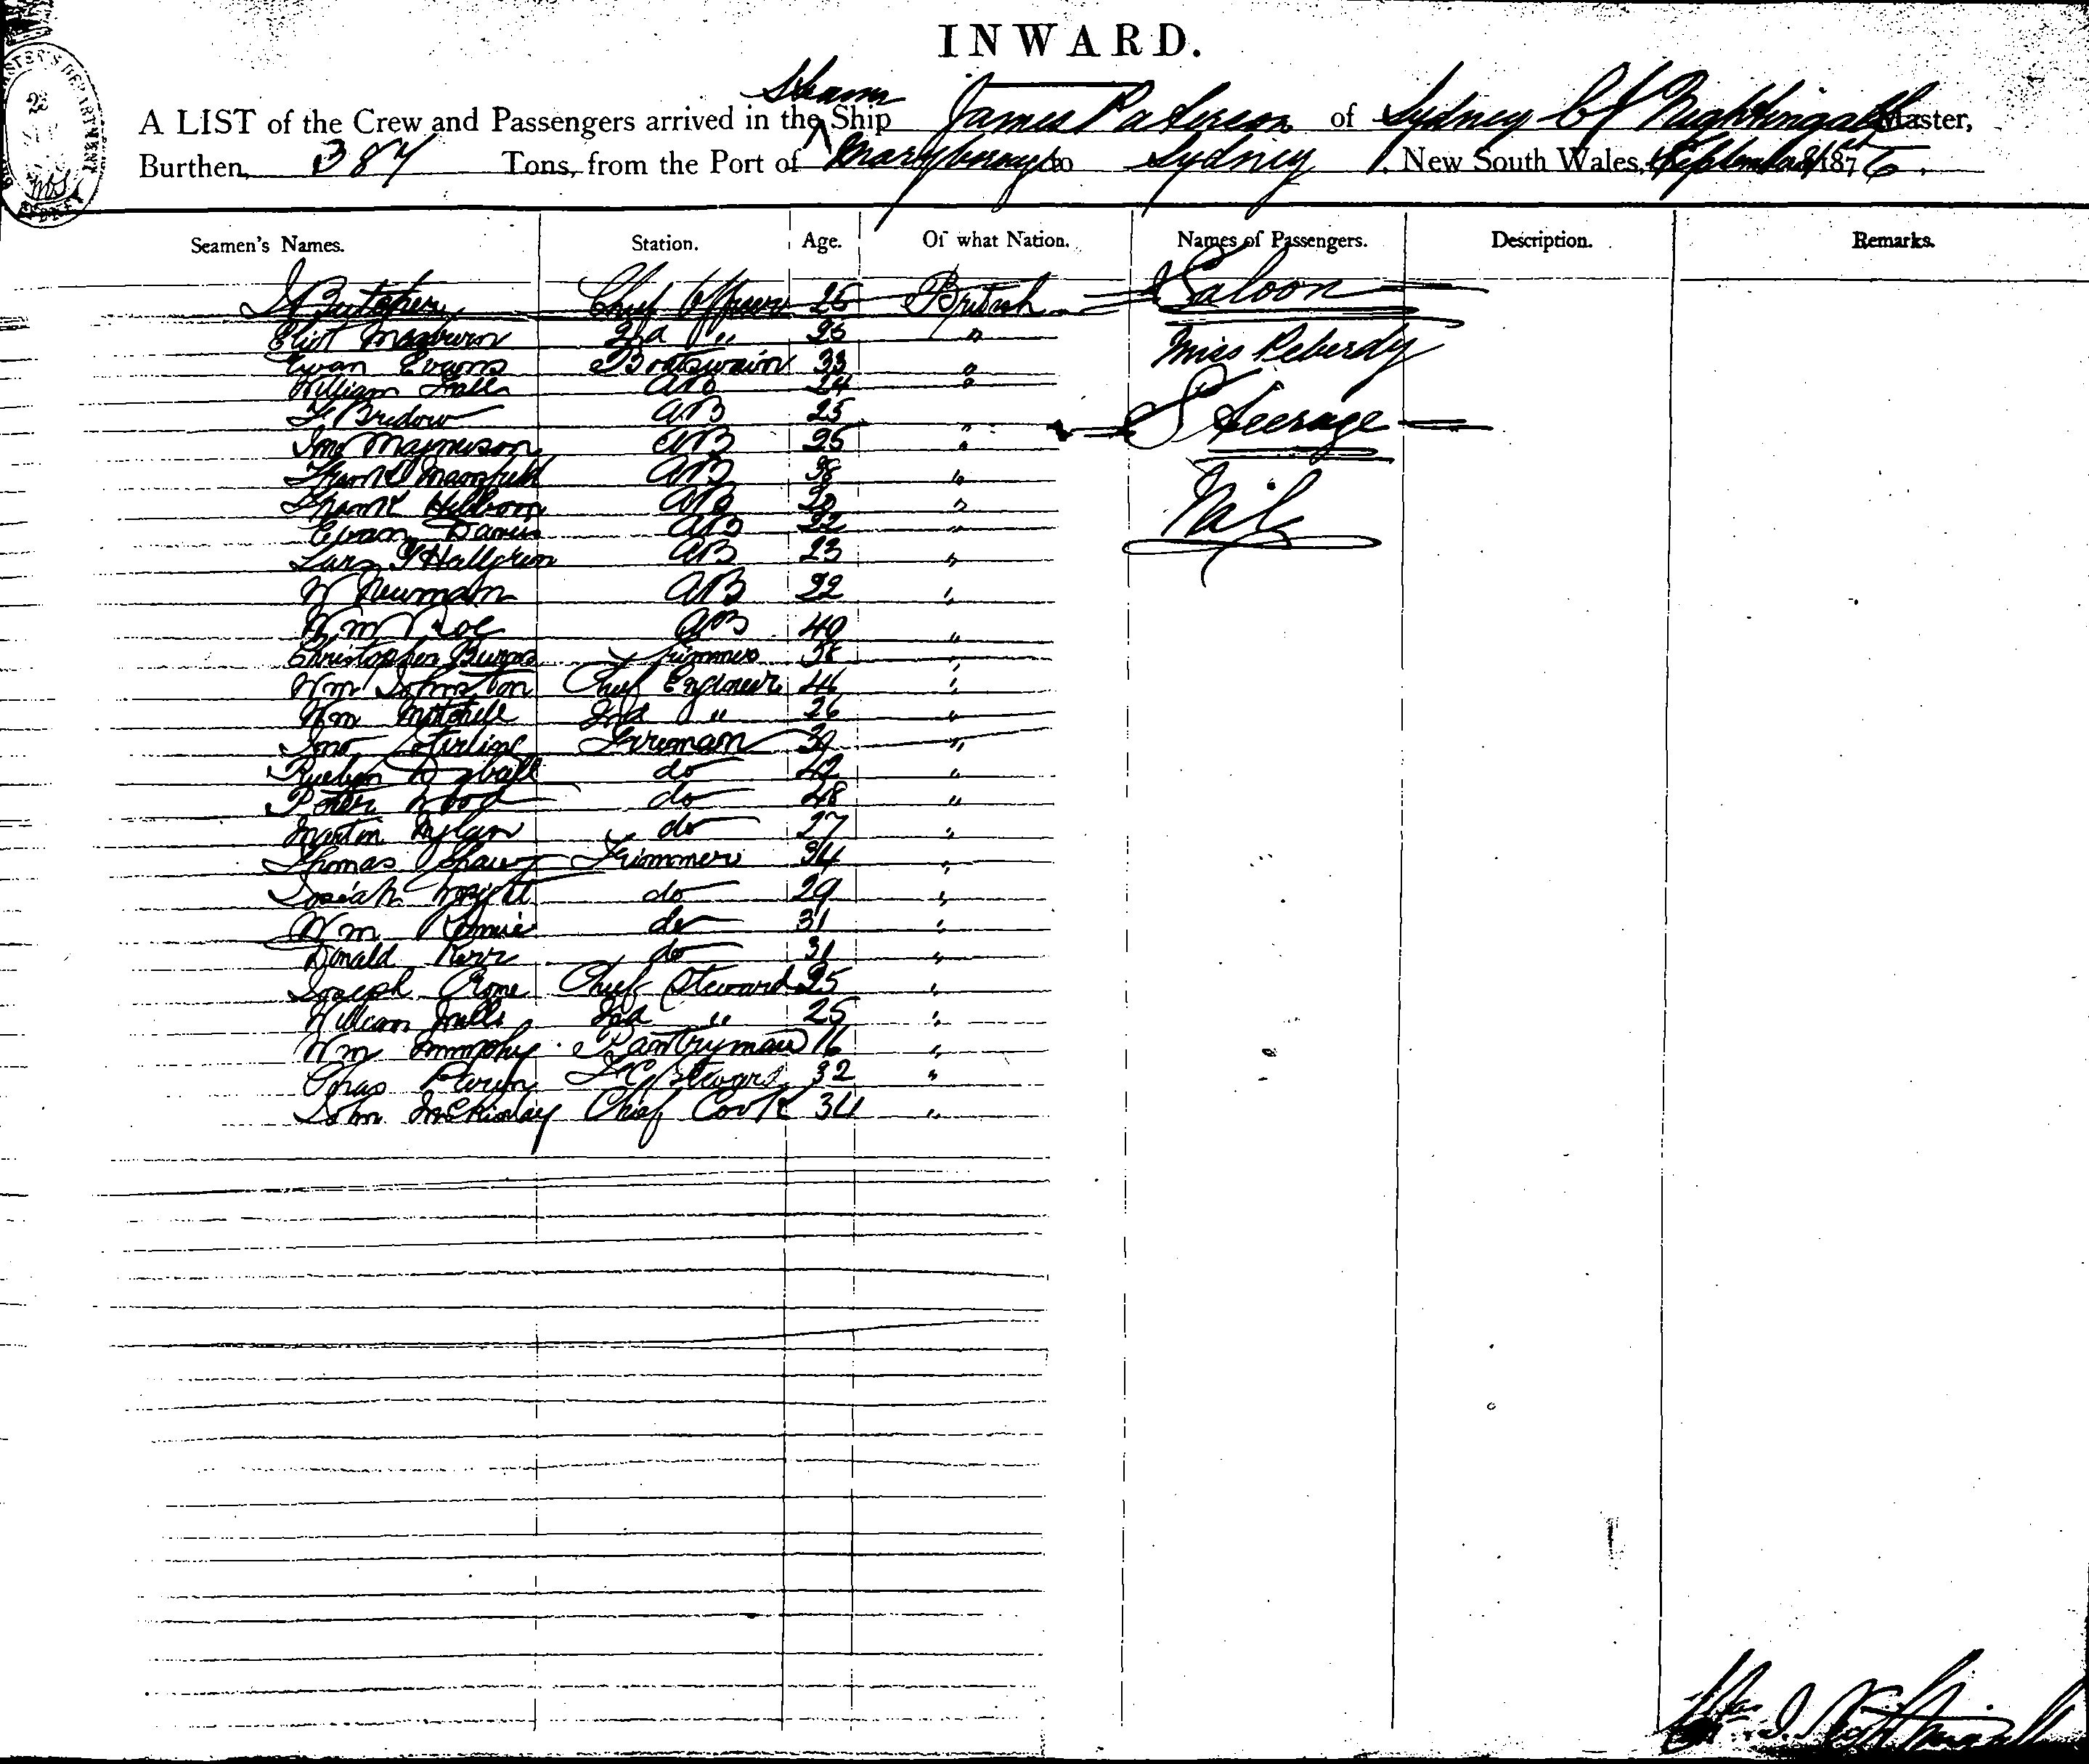 INWARD.
A LIST of the Crew and Passengers arrived in the Steam Ship James Paterson of Sydney C J Nightingall Master,
Burthen, 387 Tons, from the Port of Maryborough to Sydney, New South Wales, September 1876.
Seamen's Names. Station. Age. Of what Nation. Names of Passengers. Description. Remarks.
Chief Officer 25 British Saloon
Eliot 2nd " 25 "
Evan Evans Boatswain 33 " Miss Peberdy
William AB 24 "
F Bredow AB 25 " Steerage
Jno Magnuson AB 25 "
Frank Mansfield AB 38 " Nil
Frank AB "
Evan Davis AB 22 "
Lars Hallgren AB 23 "
W Newman AB 22 "
Wm Roe AB 40 "
Christopher Burns Trimmer 38 "
Wm Johnston Chief Engineer 44 "
Wm Mitchell 2nd " 26 "
Jno Stirling Fireman "
Reuben Dyball do 42 "
Peter Wood do 48 "
Martin Nylan do 27 "
Thomas Shaw Trimmer 34 "
Josiah Wright do 29 "
Wm Rennie do 31 "
Donald Kerr do 31 "
Joseph Crone Chief Steward 25 "
William Mills 2nd " 25 "
Wm Murphy Pantryman 16 "
Chas Steward 32 "
John McKinlay Chief Cook 34 "